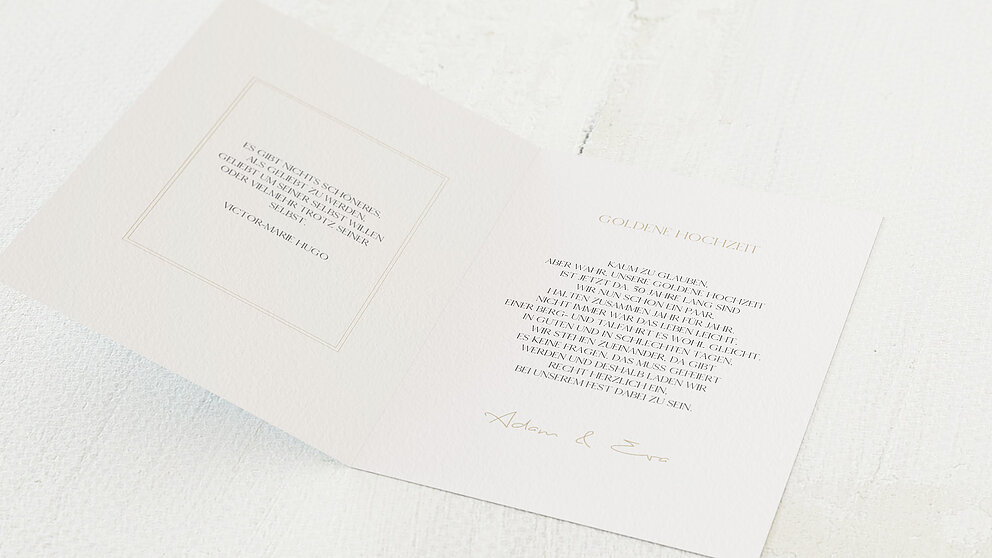 ES GIBT NICHTS SCHÖNERES,
ALS GELIEBT ZU WERDEN,
GELIEBT UM SEINER SELBST WILLEN
ODER VIELMEHR TROTZ SEINER
SELBST.
VICTOR-MARIE HUGO
GOLDENE HOCHZEIT
KAUM ZU GLAUBEN,
ABER WAHR, UNSERE GOLDENE HOCHZEIT
IST JETZT DA. 50 JAHRE LANG SIND
WIR NUN SCHON EIN PAAR,
HALTEN ZUSAMMEN JAHR FÜR JAHR.
NICHT IMMER WAR DAS LEBEN LEICHT,
EINER BERG- UND TALFAHRT ES WOHL GLEICHT.
IN GUTEN UND IN SCHLECHTEN TAGEN,
WIR STEHEN ZUEINANDER, DA GIBT
ES KEINE FRAGEN. DAS MUSS GEFEIERT
WERDEN UND DESHALB LADEN WIR
RECHT HERZLICH EIN,
BEI UNSEREM FEST DABEI ZU SEIN.
Adam & Eva